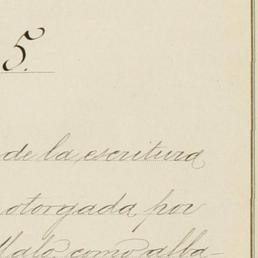 5.
de la escritura
otorgada por
Malo como alba-